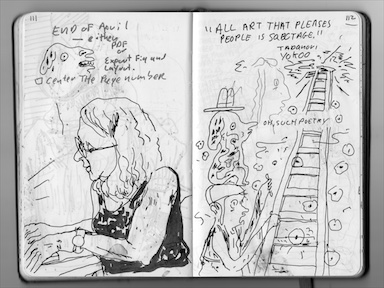 111
END OF April
— either
PDF
or
Export Fig and
Layout.
□ Center the Page number
112
"ALL ART THAT PLEASES
PEOPLE IS SABOTAGE."
TADANORI
YOKOO
OH, SUCH POETRY